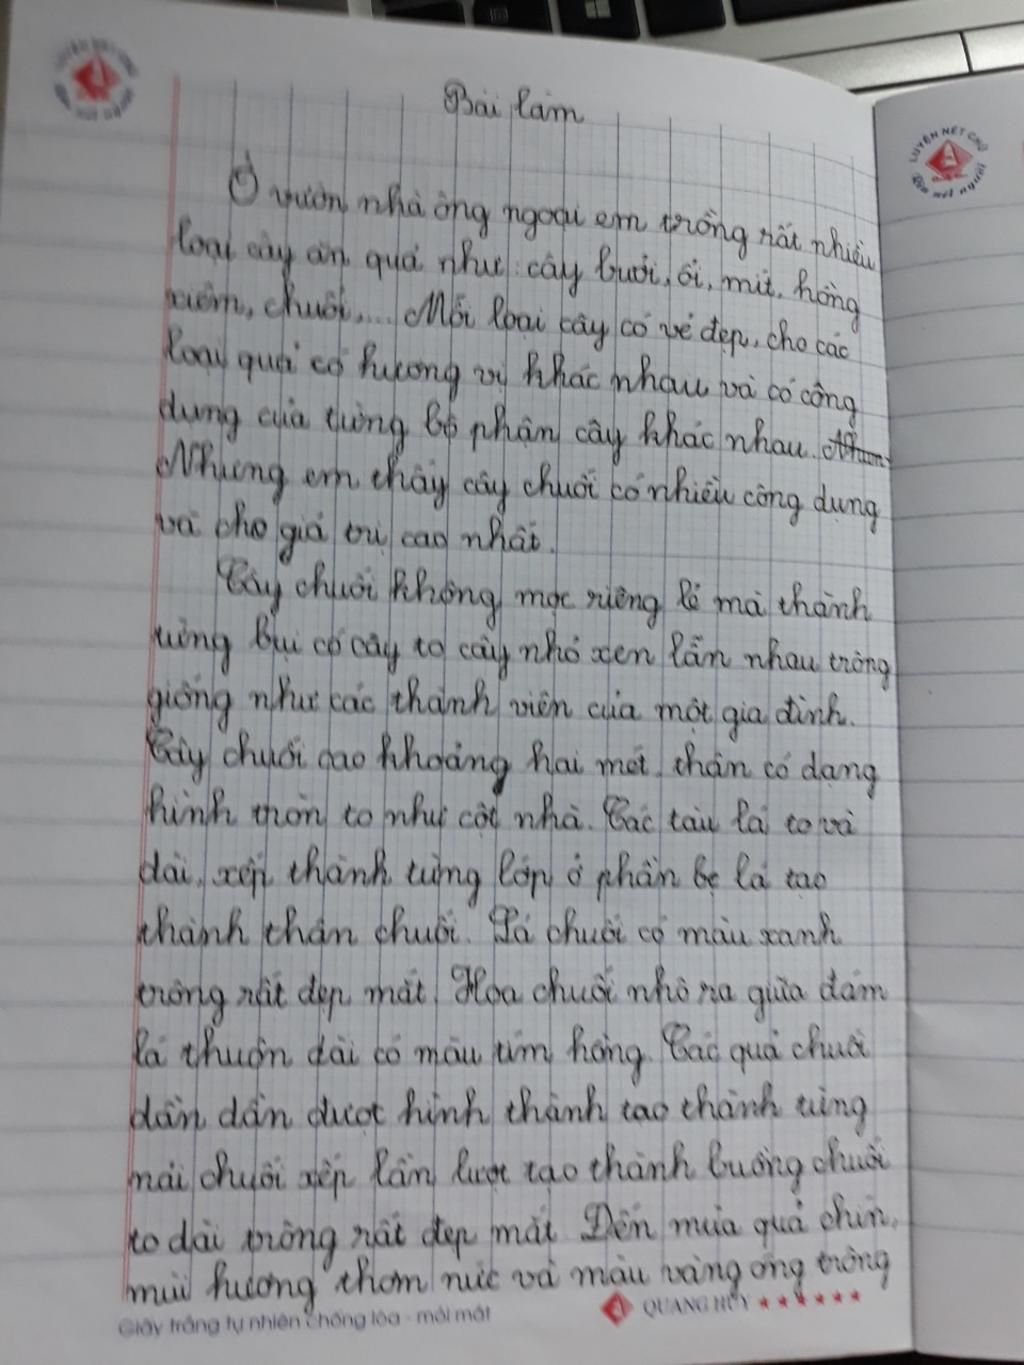 LUYỆN NÉT CHỮ
Rèn nết người
Bài làm
Ở vườn nhà ông ngoại em trồng rất nhiều
loại cây ăn quả như: cây bưởi, ổi, mít, hồng
xiêm, chuối,... Mỗi loại cây có vẻ đẹp, cho các
loại quả có hương vị khác nhau và có công
dụng của từng bộ phận cây khác nhau.
Nhưng em thấy cây chuối có nhiều công dụng
và cho giá trị cao nhất.
Cây chuối không mọc riêng lẻ mà thành
từng bụi có cây to cây nhỏ xen lẫn nhau trông
giống như các thành viên của một gia đình.
Cây chuối cao khoảng hai mét, thân có dạng
hình tròn to như cột nhà. Các tàu lá to và
dài, xếp thành từng lớp ở phần bẹ lá tạo
thành thân chuối. Lá chuối có màu xanh
trông rất đẹp mắt. Hoa chuối nhô ra giữa đám
lá thuôn dài có màu tím hồng. Các quả chuối
dần dần được hình thành tạo thành từng
nải chuối xếp lần lượt tạo thành buồng chuối
to dài trông rất đẹp mắt. Đến mùa quả chín,
mùi hương thơm nức và màu vàng óng trông
Giấy trắng tự nhiên chống lóa - mỏi mắt
QUANG HUY